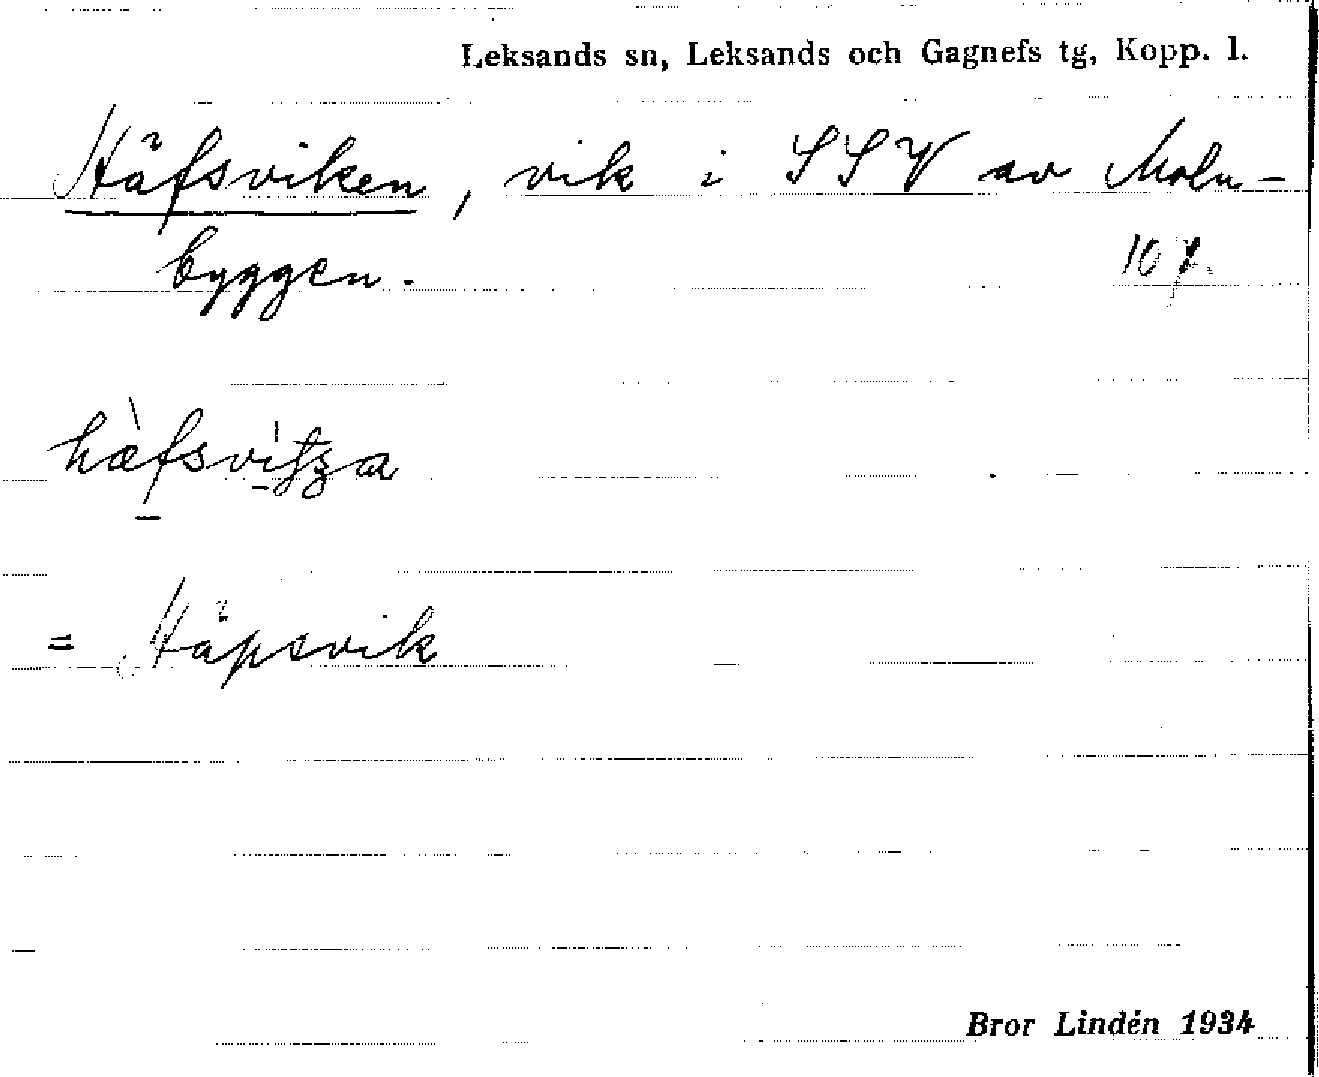 Leksands sn, Leksands och Gagnefs tg, Kopp. l.
Häfsviken, vik i SSV av Moln-
byggen.
hæ̀fsvitza
= Häpsvik
Bror Lindén 1934